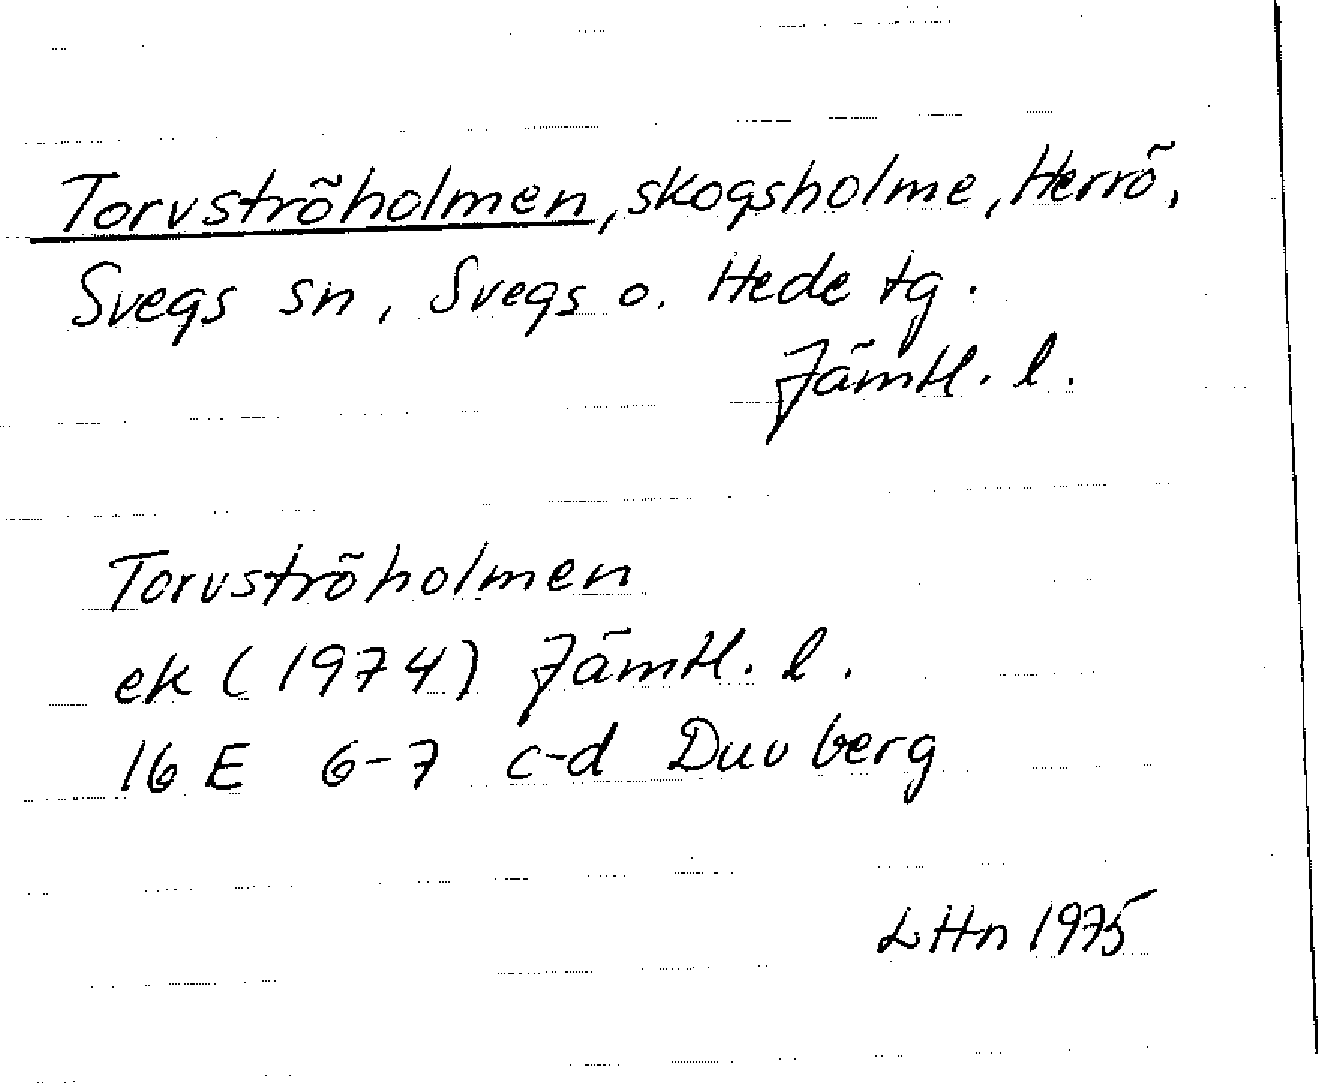 Torvströholmen, skogsholme, Herrö,
Svegs sn, Svegs o. Hede tg.
Jämtl. l.
Torvströholmen
ek (1974) Jämtl. l.
16 E 6-7 c-d Duvberg
LHn 1975